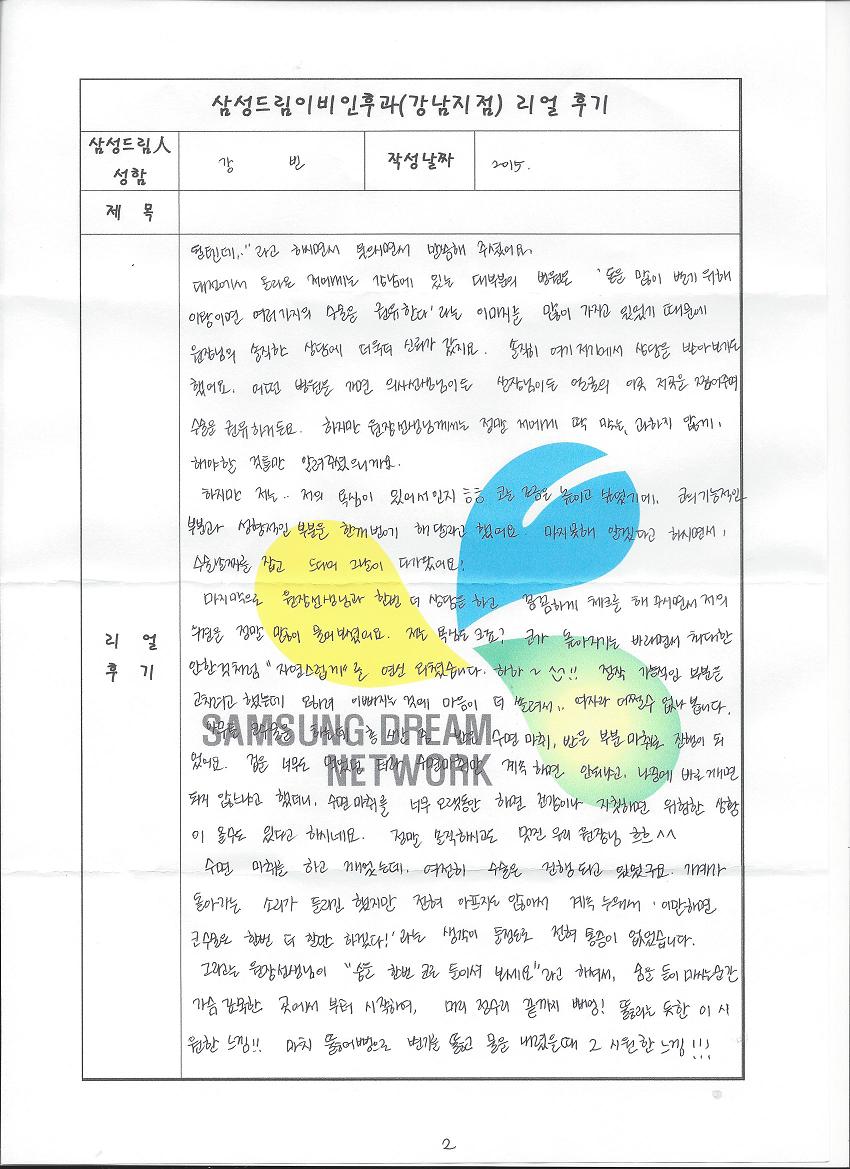 삼성드림이비인후과(강남지점) 리얼 후기
삼성드림人
성함
강 빈
작성날짜
2015.
제 목
리 얼
후 기
텐데.." 라고 하시면서 웃으시면서 말씀해 주셨어요.
대전에서 올라온 저에게는 강남에 있는 대부분의 병원은 '돈을 많이 벌기 위해
이왕이면 여러가지의 수술을 권유한다' 라는 이미지를 많이 가지고 있었기 때문에
원장님의 솔직한 상담에 더욱더 신뢰가 갔지요. 솔직히 여기저기에서 상담을 받아보기도
했어요. 어떤 병원은 가면 의사선생님이든 실장님이든 얼굴의 이곳 저곳을 찝어주며
수술을 권유하거든요. 하지만 원장선생님께서는 정말 저에게 딱 맞는, 과하지 않게,
해야할 것들만 알려주셨으니까요.
하지만 저는.. 저의 욕심이 있어서인지 ㅎㅎ 코는 조금은 높이고 싶었기에, 코의 기능적인
부분과 성형적인 부분을 한꺼번에 해달라고 했어요. 마지못해 알겠다고 하시면서,
수술날짜를 잡고 드디어 그날이 다가왔어요!
마지막으로 원장선생님과 한번 더 상담을 하고 꼼꼼하게 체크를 해 주시면서 저의
의견을 정말 많이 물어보셨어요. 저는 욕심도 크죠? 코가 높아지기는 바라면서 최대한
안한것처럼 "자연스럽게" 를 연신 외쳤습니다. 하하~ ^^!! 정작 기능적인 부분을
고치려고 했는데 오히려 이뻐지는 것에 마음이 더 쏠려서.. 여자라 어쩔수 없나 봅니다.
아무튼 코수술은 총 4시간 중 반은 수면 마취, 반은 부분마취로 진행이 되
었어요. 겁을 너무도 먹었던 터라 수면마취만 계속 하면 안되냐고, 나중에 바로 깨면
되지 않느냐고 했더니, 수면마취를 너무 오랫동안 하면 건강이나 자칫하면 위험한 상황
이 올수도 있다고 하시네요. 정말 솔직하시고도 멋진 우리 원장님 흐흐^^
수면 마취를 하고 깨었는데, 여전히 수술은 진행되고 있었구요. 기계가
돌아가는 소리가 들리긴 했지만 전혀 아프지도 않아서 계속 누워서 '이만하면
코수술은 한번 더 할만 하겠다!' 라는 생각이 들정도로 전혀 통증이 없었습니다.
그리고는 원장선생님이 "숨을 한번 코로 들이셔 보세요" 라고 하셔서, 숨을 들이마시는순간
가슴 깊숙한 곳에서 부터 시작하여, 머리 정수리 끝까지 뻐엉! 뚫리는 듯한 이 시
원한 느낌!! 마치 뚫어뻥으로 변기를 뚫고 물을 내렸을때 그 시원한 느낌!!!
SAMSUNG DREAM
NETWORK
2